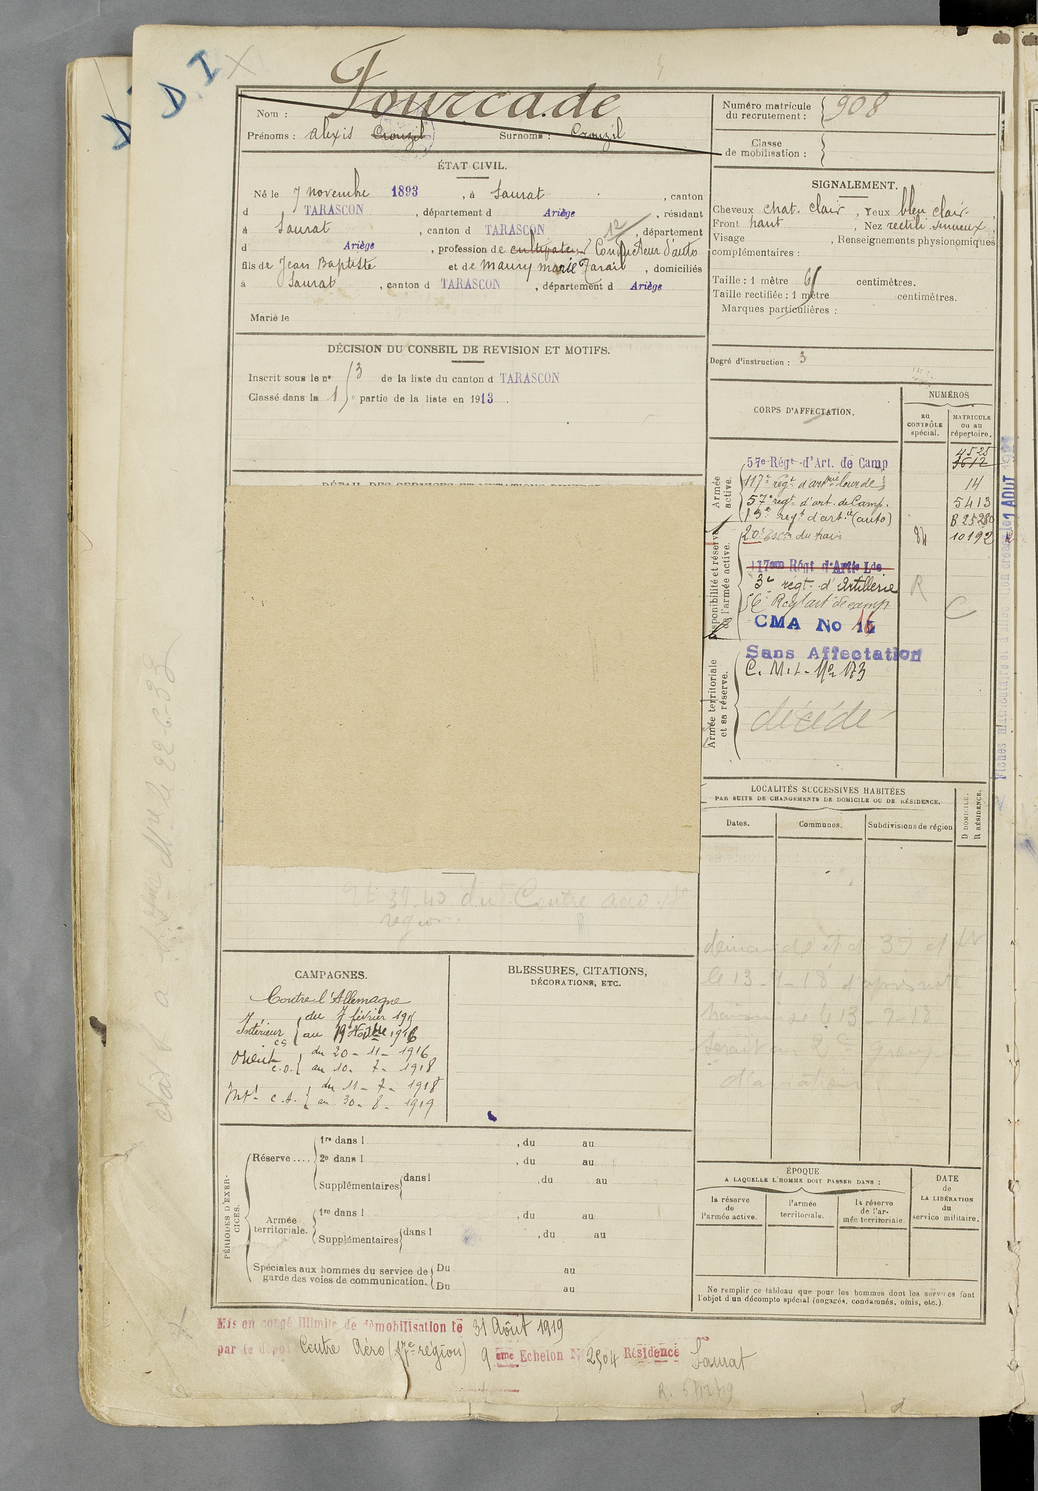 D.I X
Fourcade
Nom :
Prénoms : alexis Crouzil Surnoms : Crouzil
ÉTAT CIVIL.
Né le 7 novembre 1893, à Saurat, canton
d TARASCON, département d Ariège, résidant
à Saurat, canton d TARASCON, département
12
d Ariège, profession de cultivateur Conducteur d'auto
fils de Jean Baptiste et de Maury Marie, domiciliés
à Saurat, canton d TARASCON, département d Ariège
Marié le
DÉCISION DU CONSEIL DE REVISION ET MOTIFS.
Inscrit sous le n° 13 de la liste du canton d TARASCON
Classé dans la 1re partie de la liste en 1913.
9t 39-40 du Centre aéro
région
CAMPAGNES.
Contre l'Allemagne
Intérieur
du 7 février
au 19 1916
Orient
c.d.
du 20-11-1916
au 10-7-1918
Int. c.s.
du 11-7-1918
au 30-8-1919
BLESSURES, CITATIONS,
DÉCORATIONS, ETC.
PÉRIODES D'EXERCICES.
Réserve ....
1re dans l , du au
2e dans l , du au
Supplémentaires dans l , du au
Armée
territoriale.
1re dans l , du au
Supplémentaires dans l , du au
Spéciales aux hommes du service de
garde des voies de communication.
Du au
Du au
Mis en congé illimité de démobilisation le 31 Août 1919
par le dépôt Centre Aéro (17e région) 9 ème Echelon N° 2504 Résidence Saurat
Numéro matricule
du recrutement : 908
Classe
de mobilisation :
SIGNALEMENT.
Cheveux chat. clair, Yeux bleu clair
Front haut, Nez rectili. sinueux
Visage , Renseignements physionomiques
complémentaires :
Taille : 1 mètre 61 centimètres.
Taille rectifiée : 1 mètre centimètres.
Marques particulières :
Degré d'instruction : 3
CORPS D'AFFECTATION.
NUMÉROS
au
CONTRÔLE
spécial.
MATRICULE
ou au
répertoire.
Armée
active.
4525
57e Régt d'Art. de Camp 3612
117e régt d'artie lourde 14
57e régt d'art. de Camp. 5413
13e regt d'artie (auto) B 25280
Disponibilité et réserve
de l'armée active.
20e escon du train 84 10192
117em Régt d'Artie Lde
3e régt d'Artillerie R
56e Regt art de camp C
CMA No 16
Armée territoriale
et sa réserve.
Sans Affectation
C. M. I. No 173
décédé
LOCALITÉS SUCCESSIVES HABITÉES
PAR SUITE DE CHANGEMENTS DE DOMICILE OU DE RÉSIDENCE.
Dates.
Communes.
Subdivisions de région
D DOMICILE.
R RÉSIDENCE.
le 13-1-18
le 13-9-18
ÉPOQUE
A LAQUELLE L'HOMME DOIT PASSER DANS :
la réserve
de
l'armée active.
l'armée
territoriale.
la réserve
de l'ar-
mée territoriale
DATE
de
LA LIBÉRATION
du
service militaire.
Ne remplir ce tableau que pour les hommes dont les services font
l'objet d'un décompte spécial (engagés, condamnés, omis, etc.).
1 AOUT